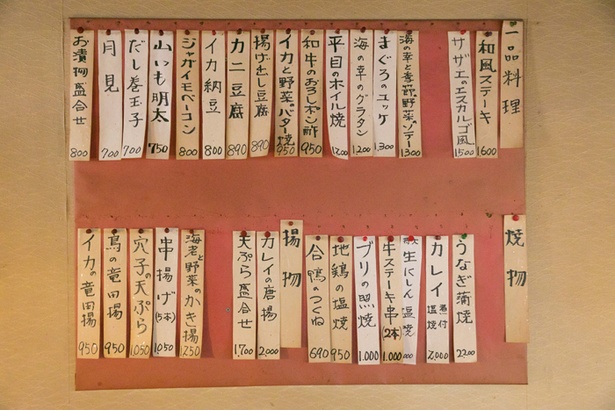 一品料理
和風ステーキ 1600
サザエのエスカルゴ風 1500
海の幸と季節野菜のソテー 1300
まぐろのユッケ 1,300
海の幸のグラタン 1,200
平目のホイル焼 1,200
和牛のおろしポン酢 950
イカと野菜のバター焼 950
揚げ出し豆腐 890
カニ豆腐 890
イカ納豆 800
ジャガイモベーコン 800
山いも明太 750
だし巻玉子 700
月見 700
お漬物盛合せ 800
焼物
うなぎ蒲焼 2200
カレイ 煮付 塩焼 2,000
生にしん塩焼
牛ステーキ串(2本) 1.000
ブリの照焼 1.000
地鶏の塩焼 950
合鴨のつくね 690
揚物
カレイの唐揚 2,000
天ぷら盛合せ 1,700
海老と野菜のかき揚 1,250
串揚げ(5本) 1,050
穴子の天ぷら 1,050
鳥の竜田揚 950
イカの竜田揚 950